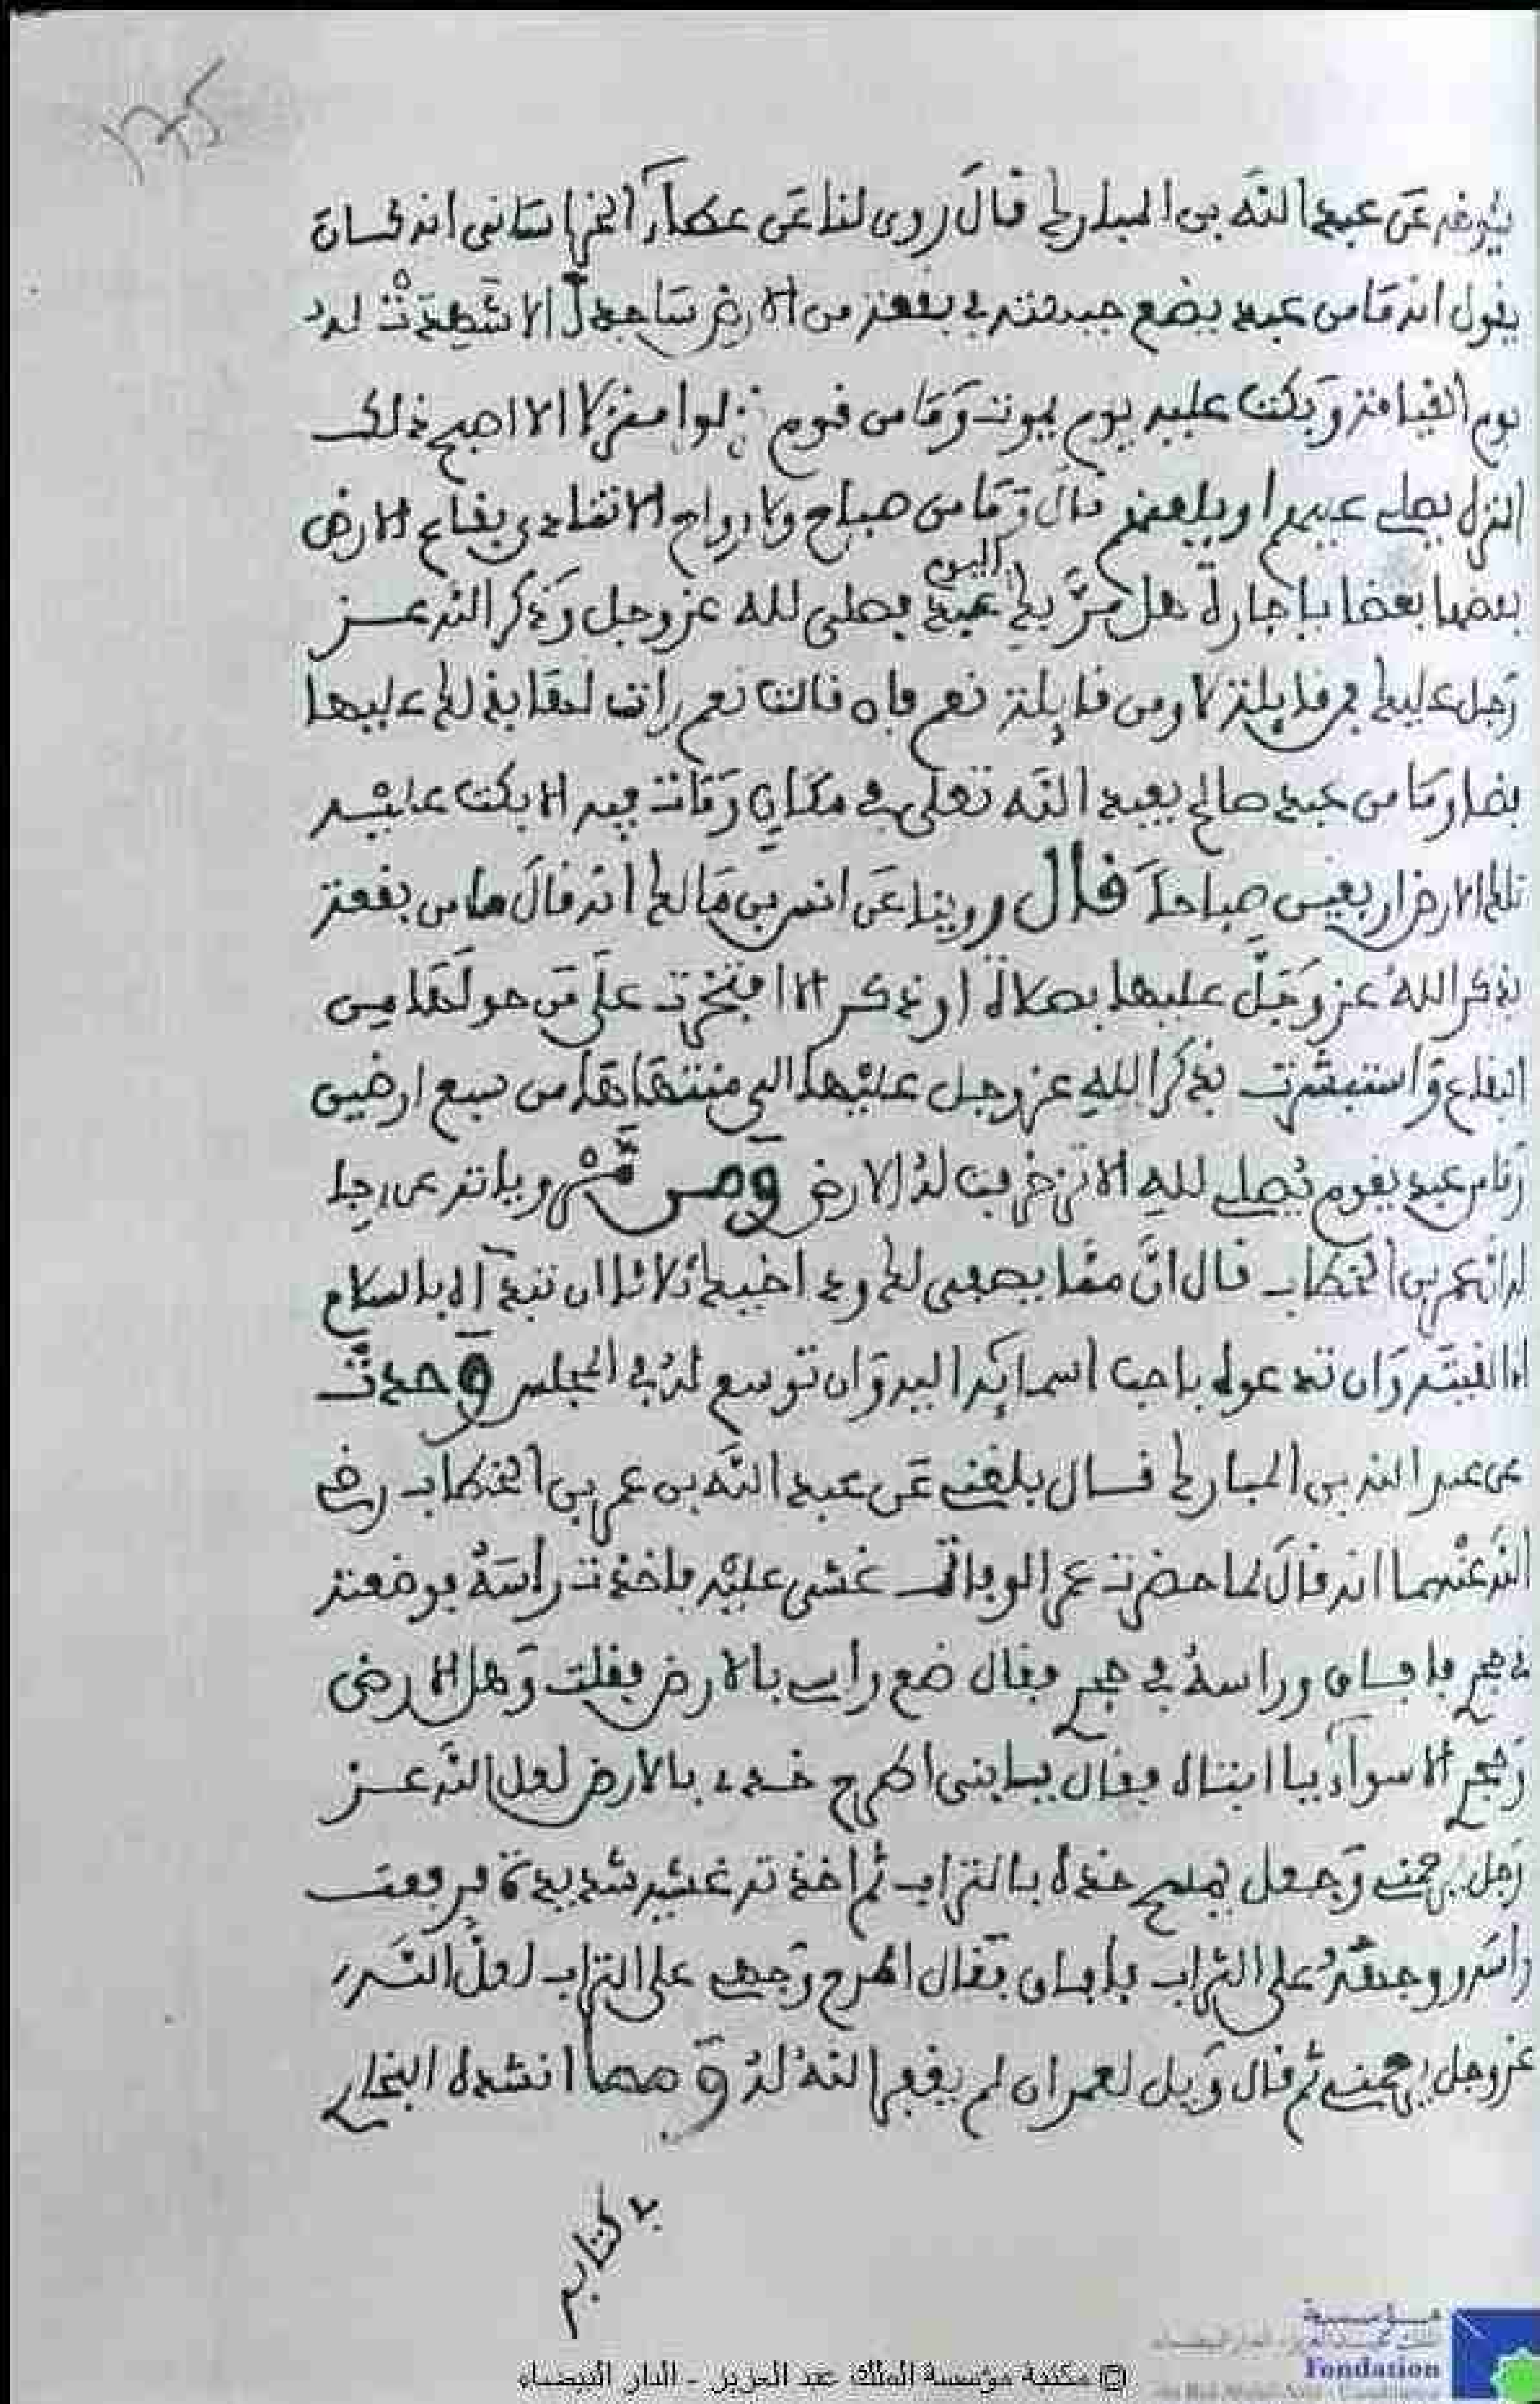 عن عبد الله بن المبارك قال روى لنا عن عطاء الخراساني انه كان
يقول انه ما من عبد يضع جبهته في بقعة من الارض ساجدا الا شهدت له
يوم القيامة وبكت عليه يوم يموت وما من قوم نزلوا منزلا الا اصبح ذلك
المنزل يصلي عليهم او يلعنهم قال وما من صباح ولا رواح الا تنادى بقاع الارض
بعضها بعضا يا جارة هل مر بك اليوم عبد يصلي لله عز وجل وذكر الله عز
وجل عليك فمن قايلة لا ومن قايلة نعم فاذا قالت نعم رات لها بذلك عليها
فضلا وما من عبد صالح يعبد الله تعلى في مكان ومات فيه الا بكت عليه
تلك الارض اربعين صباحا قال وروينا عن انس بن مالك انه قال ما من بقعة
يذكر الله عز وجل عليها بصلاة او ذكر الا افتخرت على من حولها من
البقاع واستبشرت بذكر الله عز وجل عليها الى منتهاها من سبع ارضين
وما من عبد يقوم يصلي لله الا تزخرفت له الارض ومن مروياته عن رجا
ان عمر بن الخطاب قال ان مما يصفى لك ود اخيك ثلاثا ان تبدأه بالسلام
اذا لقيته وان تدعوه باحب اسمايه اليه وان توسع له في المجلس وحدث
عن عبد الله بن المبارك قال بلغني عن عبد الله بن عمر بن الخطاب رضي
الله عنهما انه قال لما حضرت عمر الوفاة غشي عليه فاخذت رأسه فوضعته
في حجري فافاق وراسه في حجري فقال ضع راسي بالارض فقلت وهل الارض
وحجري الا سواء يا ابتاه فقال يا بني اطرح خدي بالارض لعل الله عز
وجل يرحمني وجعل يمسح خده بالتراب ثم اخذته غشية شديدة فرفعت
رأسه ووضعته على التراب فافاق فقال اطرح وجهي على التراب لعل الله
عز وجل يرحمني ثم قال ويل لعمر ان لم يغفر الله له ومما انشده البخاري
في كتابه
© مكتبة مؤسسة الملك عبد العزيز - الدار البيضاء
مؤسسة
Fondation